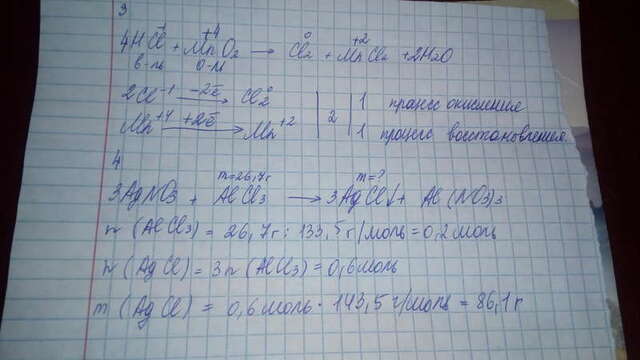 3
-1 +4 0 +2
4HCl + MnO2 → Cl2 + MnCl2 + 2H2O
в-ль о-ль
2Cl⁻¹ –2ē→ Cl2⁰ | | 1 процесс окисление
Mn⁺⁴ +2ē→ Mn⁺² | 2 | 1 процесс восстановления.
4
m=26,7г m=?
3AgNO3 + AlCl3 → 3AgCl↓ + Al(NO3)3
n (AlCl3) = 26,7г : 133,5г/моль = 0,2 моль
n (AgCl) = 3n (AlCl3) = 0,6 моль
m (AgCl) = 0,6 моль · 143,5 г/моль = 86,1 г